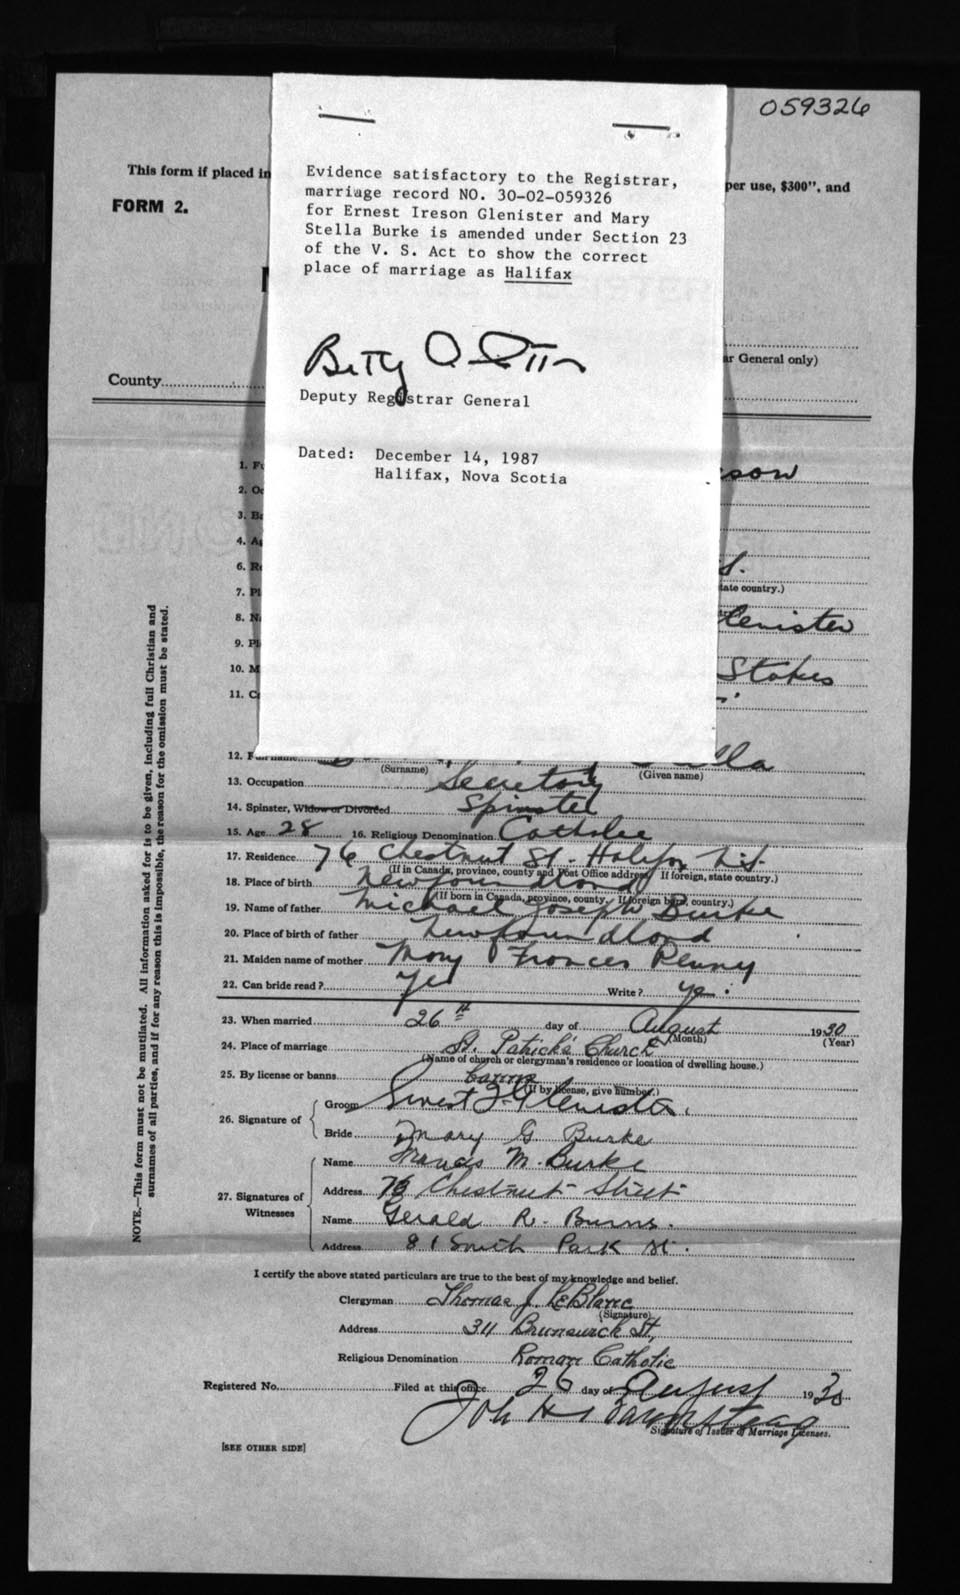 059326
This form if placed in
per use, $300", and
FORM 2.
Evidence satisfactory to the Registrar,
marriage record NO. 30-02-059326
for Ernest Ireson Glenister and Mary
Stella Burke is amended under Section 23
of the V. S. Act to show the correct
place of marriage as Halifax
Betty
Deputy Registrar General
Dated: December 14, 1987
Halifax, Nova Scotia
ar General only)
County
1. F
2. Oc
3. Ba
4. Ag
6. Re
7. Pl
tate country.)
8. N
lenister
9. Pl
10. M
Stokes
11. C
12. F
lla
(Surname) (Given name)
13. Occupation Secretary
14. Spinster, Widow or Divorced Spinster
15. Age 28 16. Religious Denomination Catholic
17. Residence 76 Chestnut St. Halifax N.S.
(If in Canada, province, county and Post Office address. If foreign, state country.)
18. Place of birth Newfoundland
(If born in Canada, province, county. If foreign born, country.)
19. Name of father Michael Joseph Burke
20. Place of birth of father Newfoundland
21. Maiden name of mother Mary Frances Penny
22. Can bride read? Yes Write? Yes.
23. When married 26th day of August 1930
(Month) (Year)
24. Place of marriage St. Patrick's Church
(Name of church or clergyman's residence or location of dwelling house.)
25. By license or banns banns
(If by license, give number.)
26. Signature of
Groom Ernest I. Glenister.
Bride Mary G Burke
27. Signatures of Witnesses
Name Francis M. Burke
Address 76 Chestnut Street
Name Gerald R. Burns.
Address 81 South Park St.
I certify the above stated particulars are true to the best of my knowledge and belief.
Clergyman Thomas J. LeBlanc
(Signature)
Address 311 Brunswick St,
Religious Denomination Roman Catholic
Registered No. Filed at this office 26 day of August 1930
Signature of Issuer of Marriage Licenses.
[SEE OTHER SIDE]
NOTE.—This form must not be mutilated. All information asked for is to be given, including full Christian and
surnames of all parties, and if for any reason this is impossible, the reason for the omission must be stated.